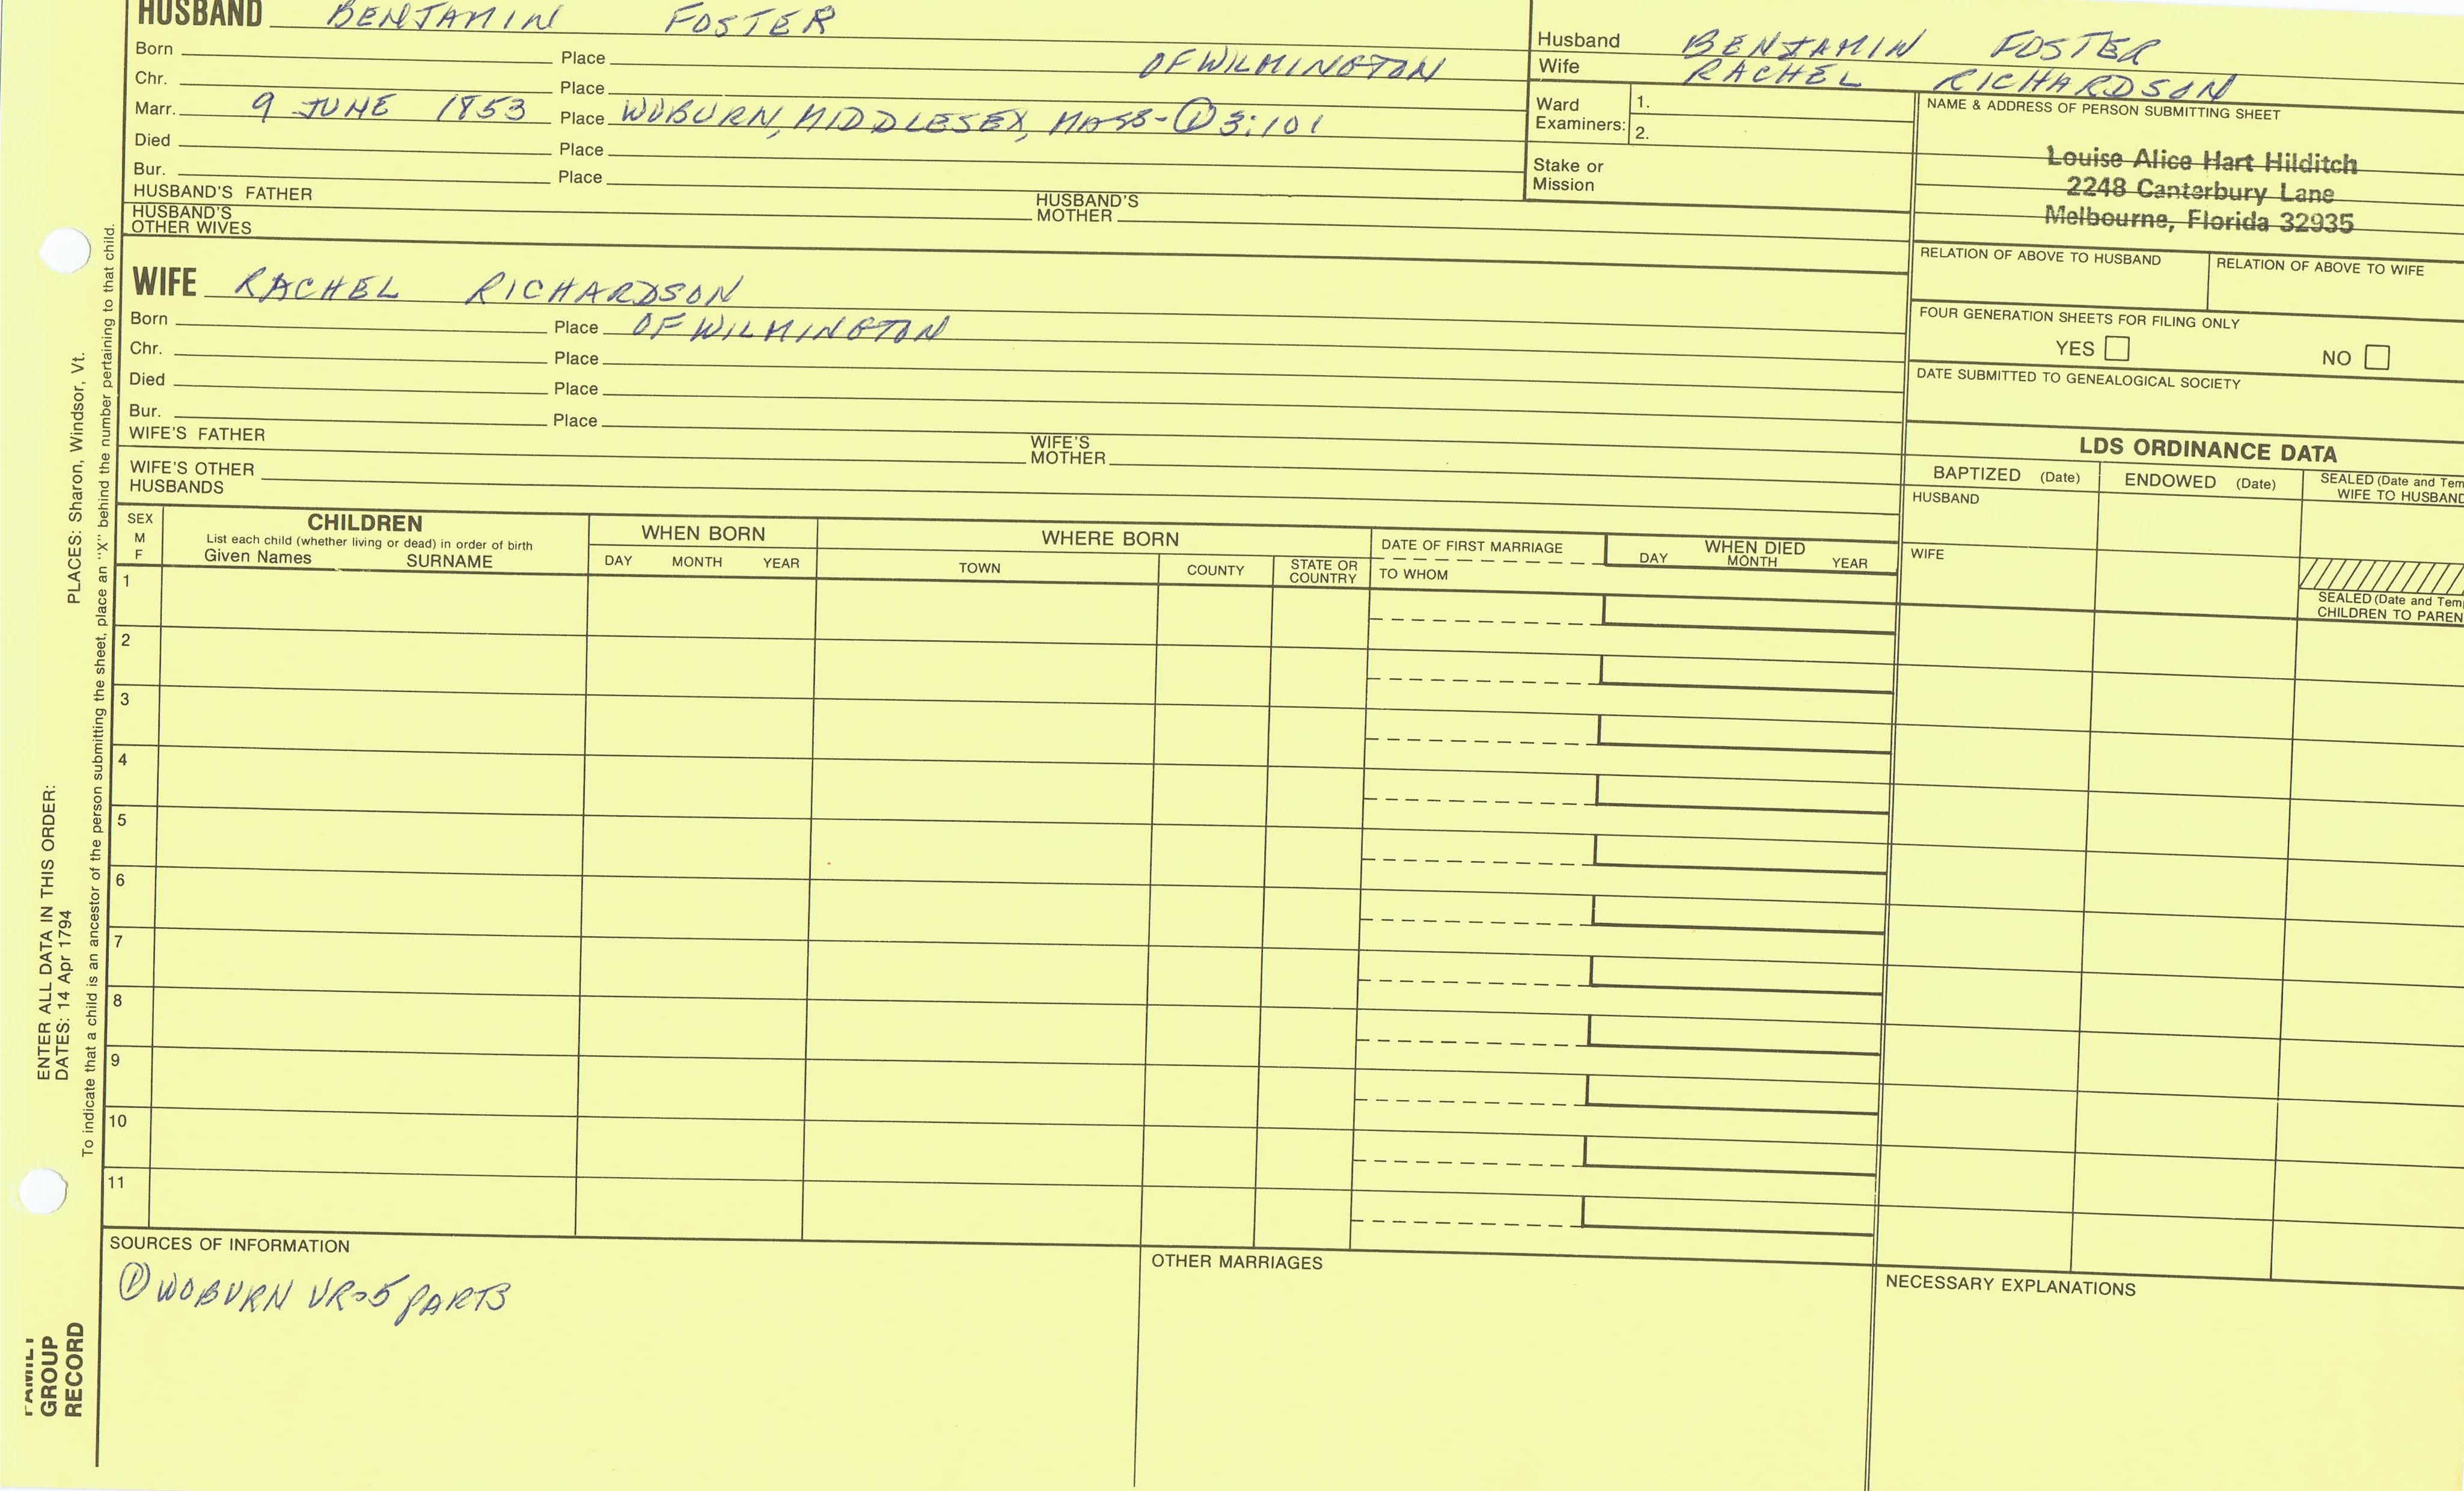 HUSBAND BENJAMIN FOSTER
Born Place OF WILMINGTON
Chr. Place
Marr. 9 JUNE 1853 Place WOBURN, MIDDLESEX, MASS-① 3:101
Died Place
Bur. Place
HUSBAND'S FATHER HUSBAND'S MOTHER
HUSBAND'S OTHER WIVES
Husband BENJAMIN FOSTER
Wife RACHEL RICHARDSON
Ward Examiners: 1.
2.
Stake or Mission
NAME & ADDRESS OF PERSON SUBMITTING SHEET
Louise Alice Hart Hilditch
2248 Canterbury Lane
Melbourne, Florida 32935
RELATION OF ABOVE TO HUSBAND RELATION OF ABOVE TO WIFE
FOUR GENERATION SHEETS FOR FILING ONLY
YES NO
DATE SUBMITTED TO GENEALOGICAL SOCIETY
WIFE RACHEL RICHARDSON
Born Place OF WILMINGTON
Chr. Place
Died Place
Bur. Place
WIFE'S FATHER WIFE'S MOTHER
WIFE'S OTHER HUSBANDS
LDS ORDINANCE DATA
BAPTIZED (Date) ENDOWED (Date) SEALED (Date and Tem
WIFE TO HUSBAND
HUSBAND
WIFE
SEALED (Date and Tem
CHILDREN TO PAREN
SEX
M
F
CHILDREN
List each child (whether living or dead) in order of birth
Given Names SURNAME
WHEN BORN
DAY MONTH YEAR
WHERE BORN
TOWN COUNTY STATE OR COUNTRY
DATE OF FIRST MARRIAGE
TO WHOM
WHEN DIED
DAY MONTH YEAR
1
2
3
4
5
6
7
8
9
10
11
SOURCES OF INFORMATION
① WOBURN VR-5 PARTS
OTHER MARRIAGES
NECESSARY EXPLANATIONS
ENTER ALL DATA IN THIS ORDER:
DATES: 14 Apr 1794 PLACES: Sharon, Windsor, Vt.
To indicate that a child is an ancestor of the person submitting the sheet, place an "X" behind the number pertaining to that child.
FAMILY
GROUP
RECORD